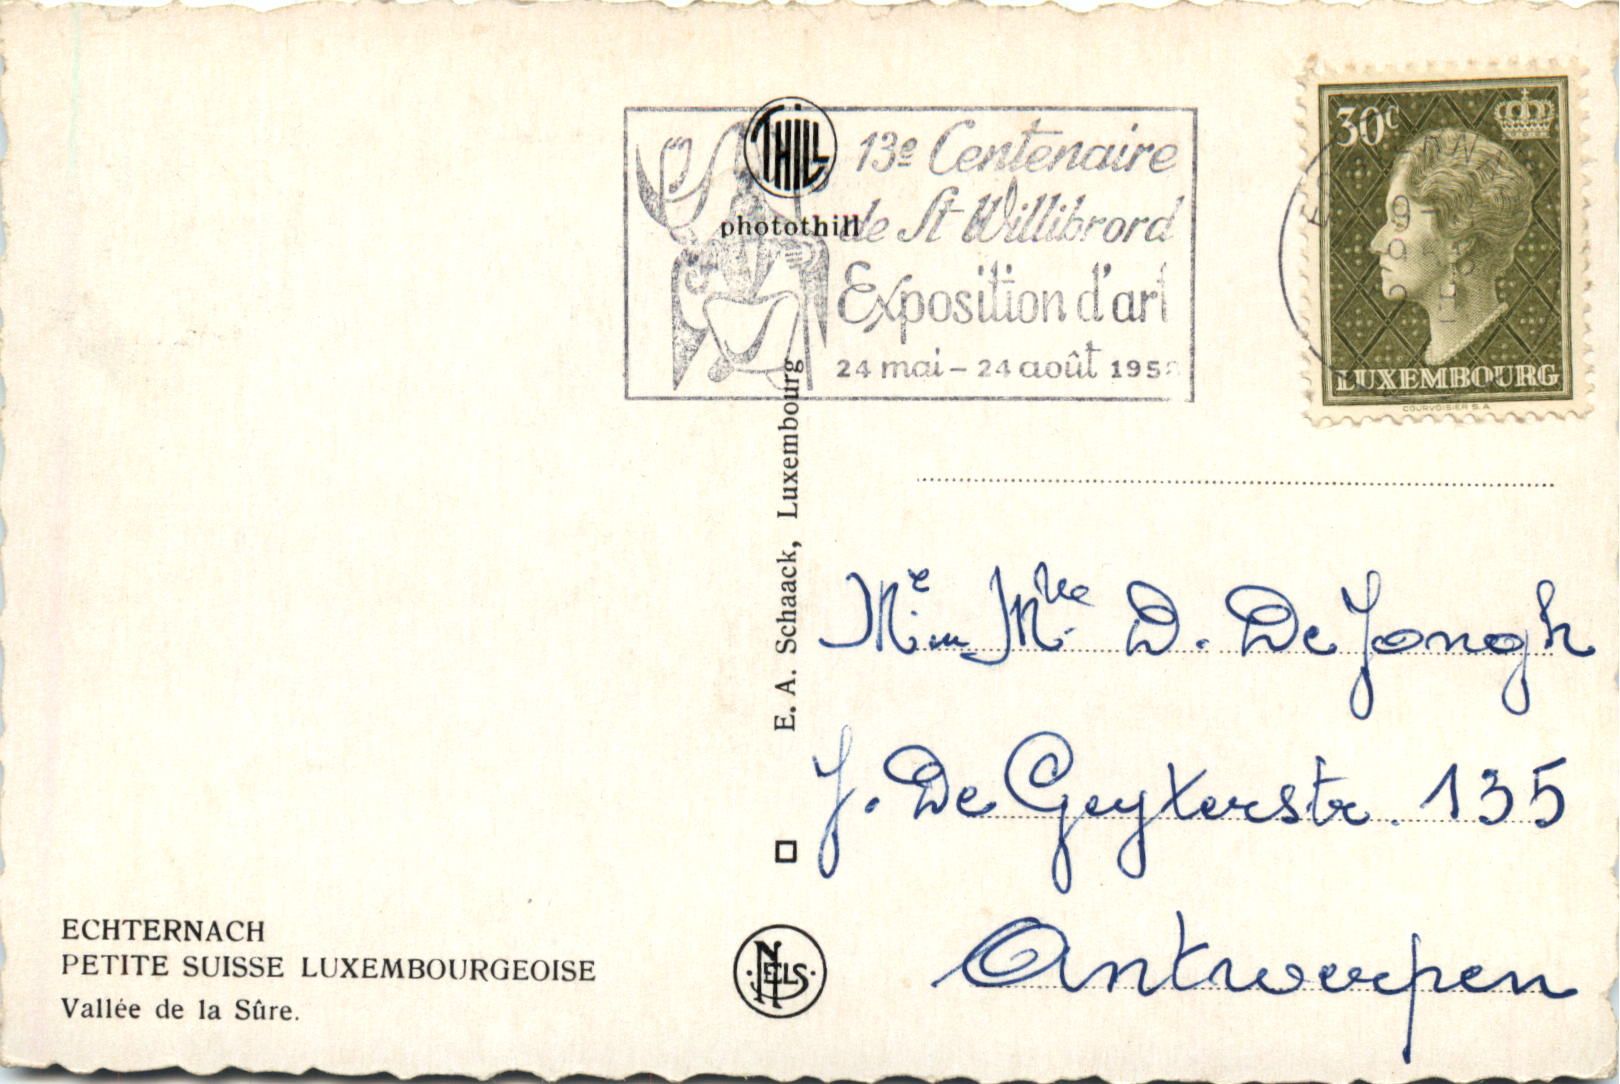 THILL
photothill
13e Centenaire
de St Willibrord
Exposition d'art
24 mai – 24 août 1958
30c
LUXEMBOURG
COURVOISIER S.A
E. A. Schaack, Luxembourg
Mr. en Mlle D. De Jongh
J. De Geyterstr. 135
Antwerpen
ECHTERNACH
PETITE SUISSE LUXEMBOURGEOISE
Vallée de la Sûre.
NELS